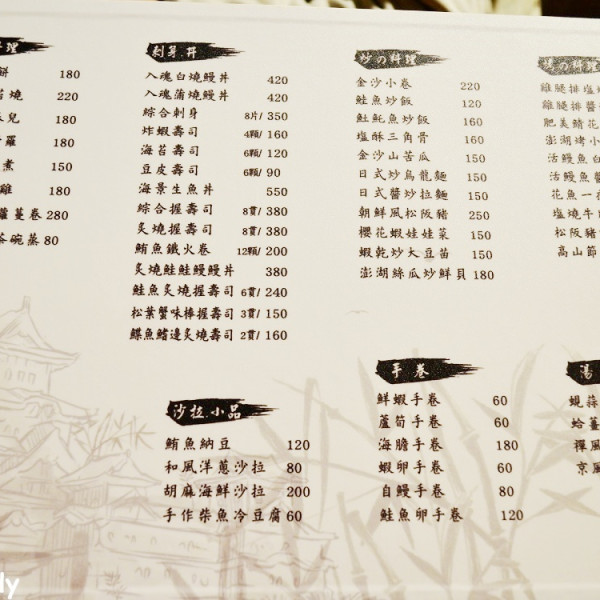 料理
餅 180
燒 220
兒 180
羅 180
煮 150
雞 180
蘿蔓卷 280
茶碗蒸 80
刺身.丼
入魂白燒鰻丼 420
入魂蒲燒鰻丼 420
綜合刺身 8片/350
炸蝦壽司 4顆/160
海苔壽司 6顆/120
豆皮壽司 6顆/90
海景生魚丼 550
綜合握壽司 8貫/380
炙燒握壽司 8貫/380
鮪魚鐵火卷 12顆/200
炙燒鮭鮭鰻鰻丼 380
鮭魚炙燒握壽司 6貫/240
松葉蟹味棒握壽司 3貫/150
鰈魚鰭邊炙燒壽司 2貫/160
炒の料理
金沙小卷 220
鮭魚炒飯 120
魠魠魚炒飯 160
塩酥三角骨 160
金沙山苦瓜 150
日式炒烏龍麵 150
日式醬炒拉麵 150
朝鮮風松阪豬 250
櫻花蝦娃娃菜 150
蝦乾炒大豆苗 150
澎湖絲瓜炒鮮貝 180
燒の料理
雞腿排塩
雞腿排醬
肥美鯖花
澎湖烤小
活鰻魚白
活鰻魚醬
花魚一
塩燒牛
松阪豬
高山節
沙拉.小品
鮪魚納豆 120
和風洋蔥沙拉 80
胡麻海鮮沙拉 200
手作柴魚冷豆腐 60
手卷
鮮蝦手卷 60
蘆筍手卷 60
海膽手卷 180
蝦卵手卷 60
自鰻手卷 80
鮭魚卵手卷 120
湯
蜆蒜
蛤薑
禪風
京風
dy